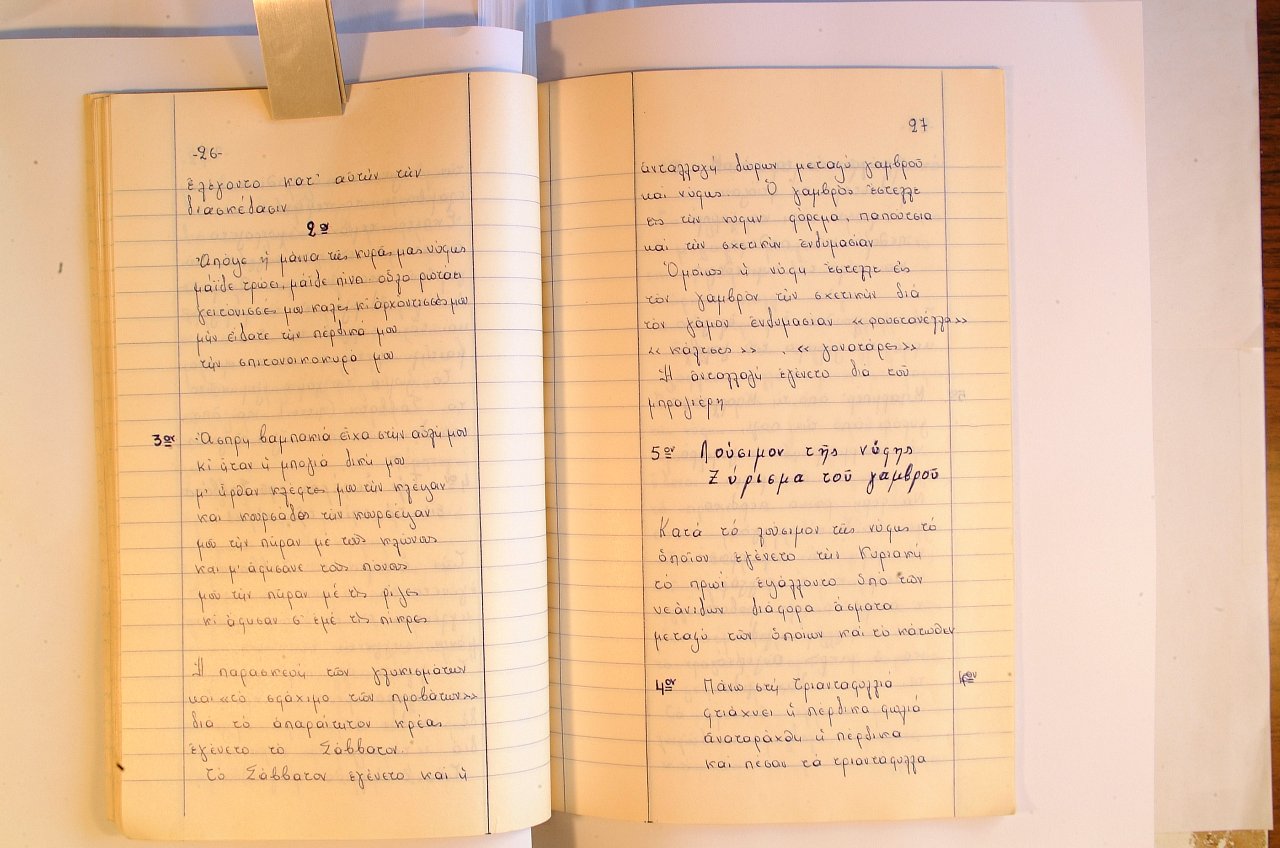 -26-
ἐλέγοντο κατ' αὐτὴν τὴν
διασκέδασιν
2ον
Ἀπόψε ἡ μάννα τῆς κυρᾶς μας νύφης
μάϊδε τρώει, μάϊδε πίνει οὖλο ρωτάει
γειτόνισσές μου καλές κι ἀρχόντισσές μου
μὴν εἴδατε τὴν πέρδικά μου
τὴν σπιτονοικοκυρά μου
3ον Ἄσπρη βαμπακιά εἶχα στὴν αὐλή μου
κι ἦταν ἡ μπολιά δική μου
μ' ἦρθαν κλέφτες μου τὴν κλέψαν
καὶ κουρσάδες τὴν κουρσέψαν
μοῦ τὴν πῆραν μὲ τοὺς κλώνους
καὶ μ' ἀφήσανε τοὺς πόνους
μοῦ τὴν πῆραν μὲ τὶς ρίζες
κι ἄφησαν σ' ἐμὲ τὶς πίκρες
Ἡ παρασκευή τῶν γλυκισμάτων
καὶ «τὸ σφάξιμο τῶν προβάτων»
διὰ τὸ ἀπαραίτητον κρέας
ἐγένετο τὸ Σάββατον.
τὸ Σάββατον ἐγένετο καὶ ἡ
27
ἀνταλλαγή δώρων μεταξύ γαμβροῦ
καὶ νύφης. Ὁ γαμβρὸς ἔστελλε
εἰς τὴν νύφην φόρεμα, παπούτσια
καὶ τὴν σχετικὴν ἐνδυμασίαν
Ὁμοίως ἡ νύφη ἔστελλε εἰς
τὸν γαμβρὸν τὴν σχετικὴν διὰ
τὸν γάμον ἐνδυμασίαν «φουστανέλλα»
«κάλτσες», «γονατάρες»
Ἡ ἀνταλλαγή ἐγένετο διὰ τοῦ
μπραζιέρη
5ον Λούσιμον τῆς νύφης
Ξύρισμα τοῦ γαμβροῦ
Κατά τό λούσιμον τῆς νύφης τό
ὁποῖον ἐγένετο τὴν Κυριακή
τὸ πρωί ἐψάλλοντο ὑπὸ τῶν
νεανίδων διάφορα ἄσματα
μεταξὺ τῶν ὁποίων καὶ τὸ κάτωθεν
4ον Πάνω στὴ τριανταφυλλιά
φτιάχνει ἡ πέρδικα φωλιά
ἀναταράχθη ἡ πέρδικα
καὶ πέσαν τὰ τριαντάφυλλα